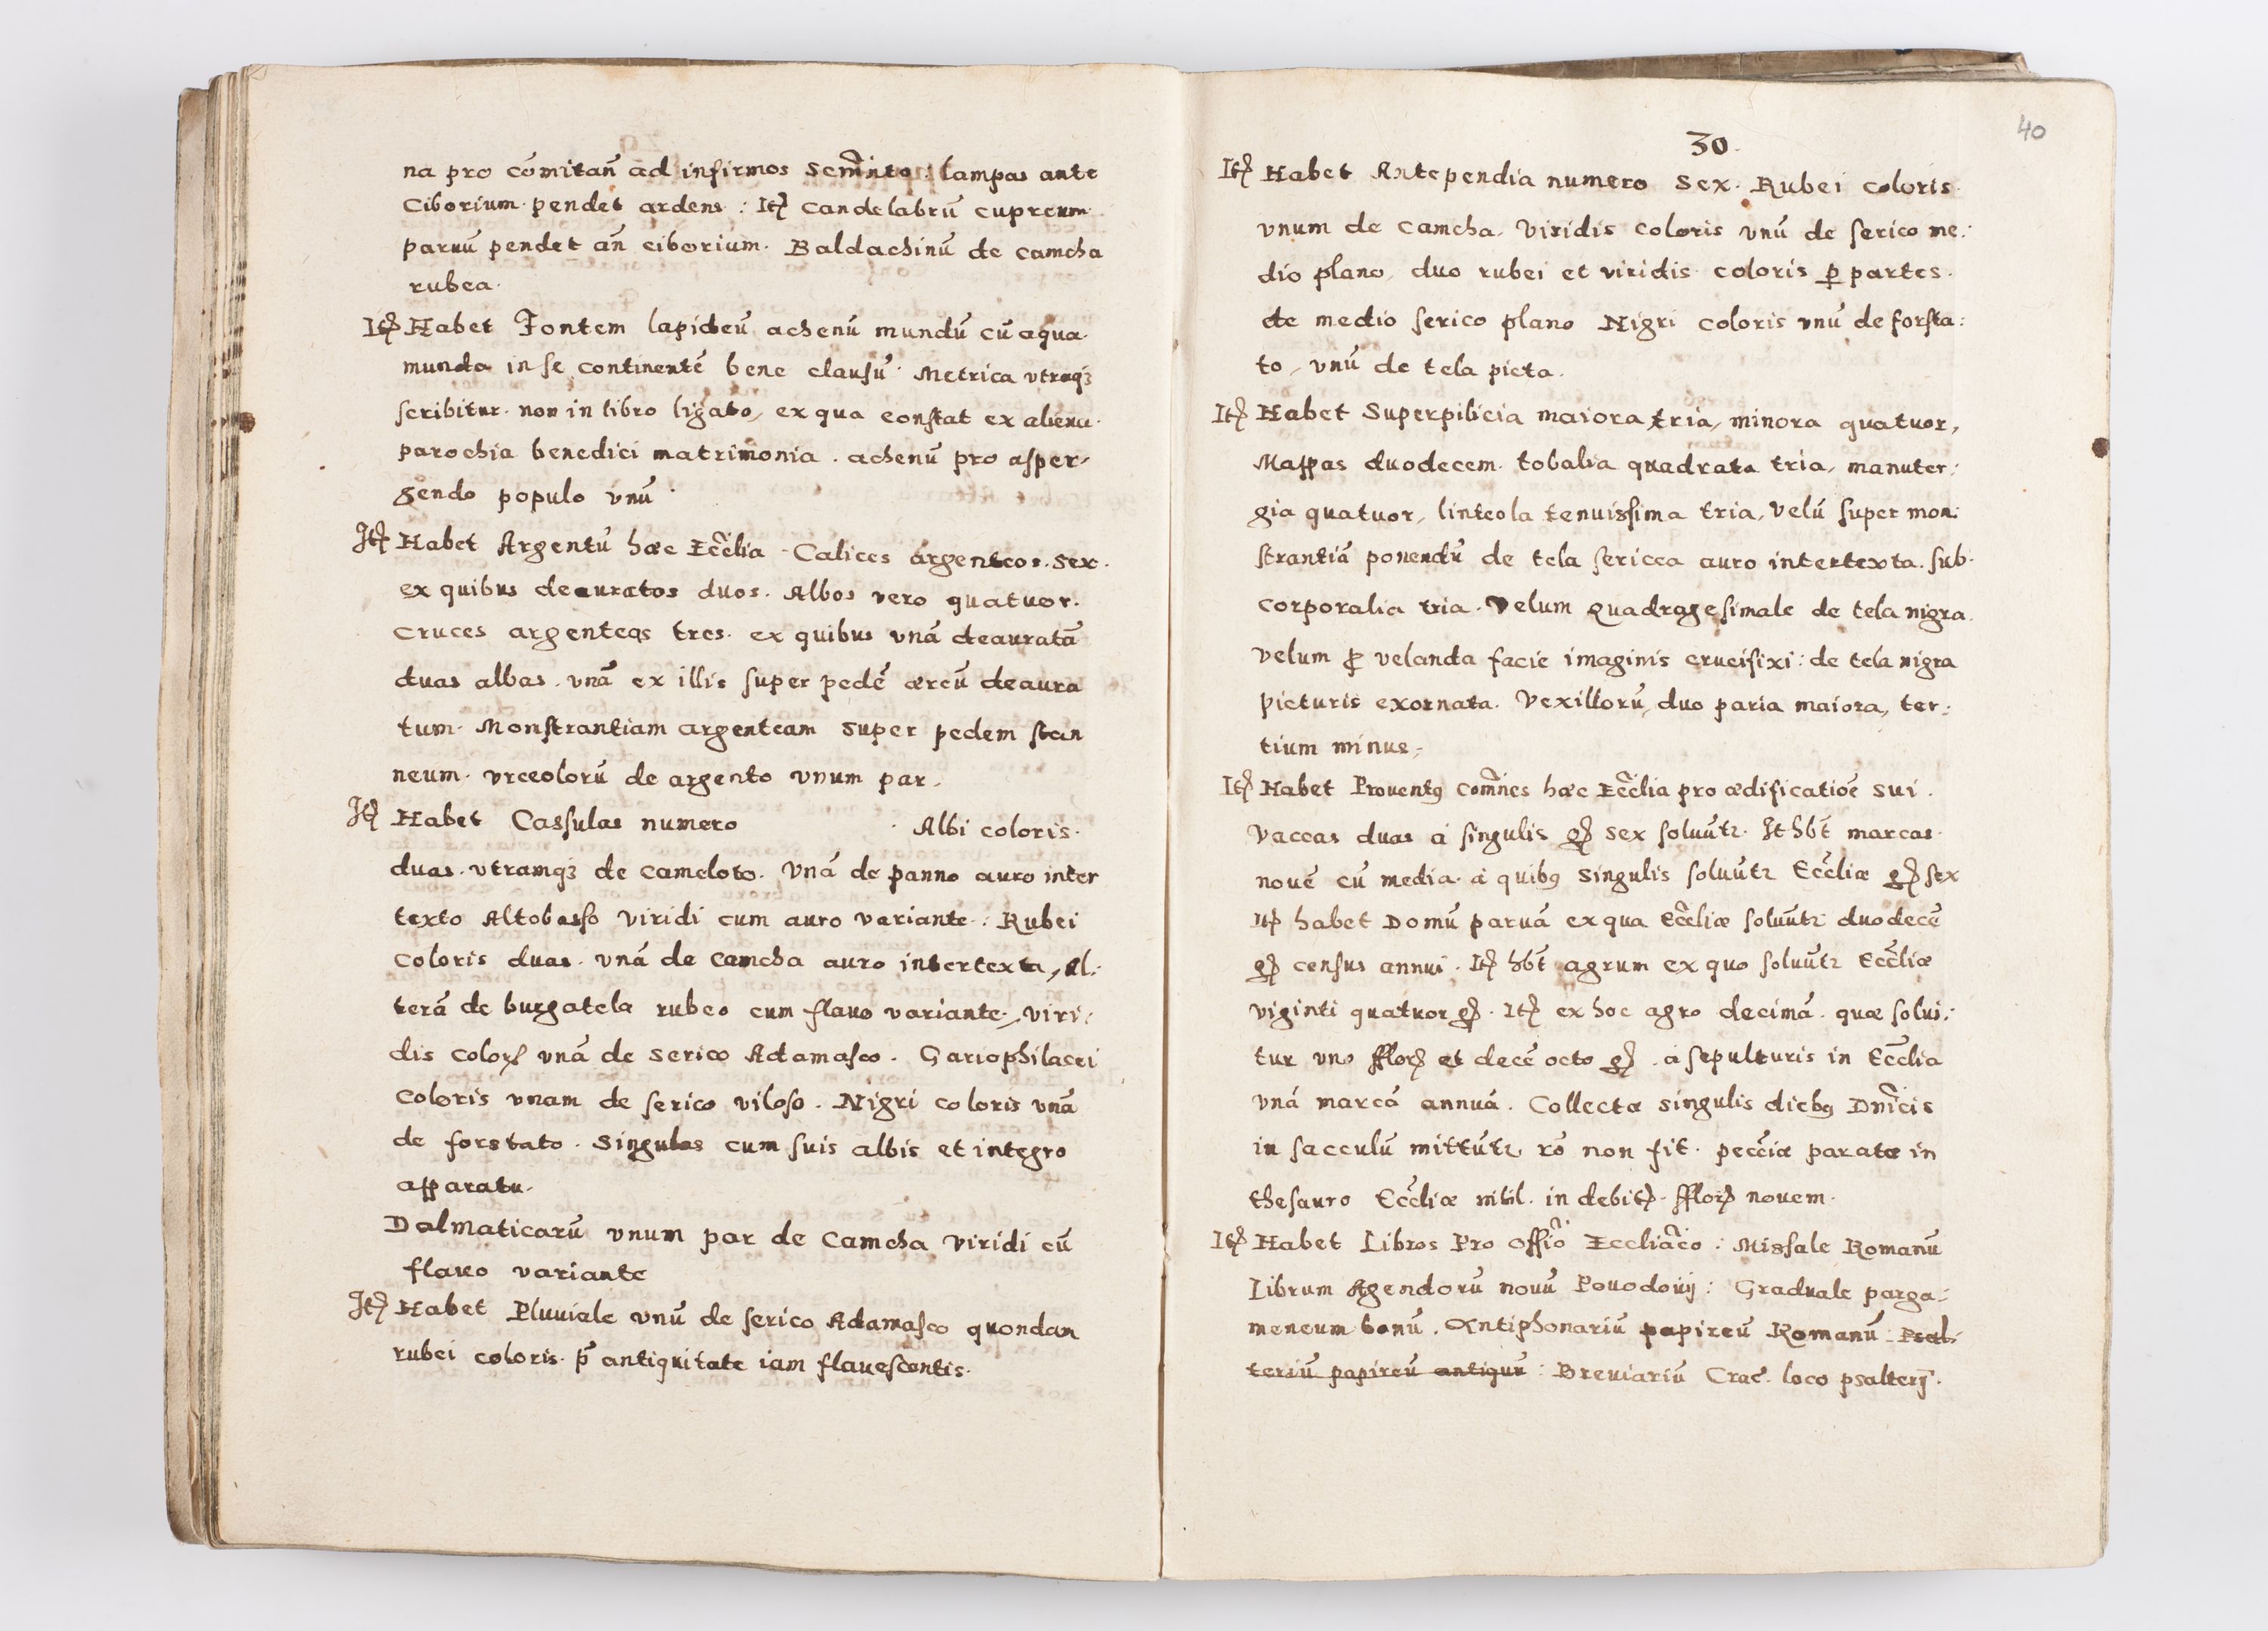 na pro cōmitań ad infirmos Scm̃nto : lampas ante
Ciborium pendet ardens : Itꝫ candelabrū cupreum
paruū pendet añ ciborium. Baldachinū de camcha
rubea.
Itꝫ Habet Fontem lapideū achenū mundū cū aqua
munda in se continentē bene clausū. Metrica vtraqꝫ
scribitur non in libro ligato, ex qua constat ex aliena
parochia benedici matrimonia. achenū pro asper-
gendo populo vnū.
Itꝫ Habet Argentū hæc Eccĩlia Calices argenteos. Sex.
ex quibus deauratos duos. Albos vero quatuor.
Cruces argenteas tres. ex quibus vnā deauratā
duas albas. vnā ex illis super pedē æreū deaura
tum. Monstrantiam argenteam super pedem stan
neum. vrceolorū de argento vnum par.
Itꝫ Habet Cassulas numero Albi coloris.
duas. vtramqꝫ de cameloto. Vnā de panno auro inter
texto Altobasso viridi cum auro variante : Rubei
coloris duas. vnā de Camcha auro intertexta, Al:
terā de burgatela rubeo cum flauo variante, viri:
dis colorꝭ vnā de serico Adamasco. Gariophilacei
coloris vnam de serico viloso. Nigri coloris vnā
de forstato. Singulas cum suis albis et integro
apparatu.
Dalmaticarū vnum par de Camcha viridi cū
flauo variante
Itꝫ Habet Pluuiale vnū de serico Adamasco quondan
rubei coloris. p̄ antiquitate iam flauescentis.
40
30.
Itꝫ Habet Antependia numero Sex. Rubei coloris
vnum de Camcha. Viridis coloris vnū de serico me:
dio plano, duo rubei et viridis coloris ꝑ partes.
de medio serico plano Nigri coloris vnū de forsta:
to, vnū de tela picta.
Itꝫ Habet Superpilicia maiora tria, minora quatuor,
Mappas duodecem. tobalia quadrata tria, manuter:
gia quatuor, linteola tenuissima tria, velū super mon:
strantiā ponendū de tela sericea auro intertexta. sub.
corporalia tria. Velum quadragesimale de tela nigra.
velum ꝓ velanda facie imaginis crucifixi : de tela nigra
picturis exornata. Vexillorū, duo paria maiora, ter:
tium minus.
Itꝫ Habet Prouentꝰ com̃nes hæc Eccĩlia pro ædificatiōe sui.
Vaccas duas à singulis gꝭ sex soluūtꝛ. It hb̄t marcas
nouē cū media. à quibꝰ singulis soluūtꝛ Eccl̄iæ gꝭ sex
Itꝫ habet Domū paruā ex qua Eccl̄iæ soluūtꝛ duodecē
gꝭ census annui. Itꝫ hb̄t agrum ex quo soluūtꝛ Eccl̄iæ
viginti quatuor gꝭ. Itꝫ ex hoc agro decimā. quæ solui:
tur vno fflorꝭ et decē octo gꝭ. à sepulturis in Eccl̄ia
vnā marcā annuā. Collectæ singulis diebꝰ Dñicis
in sacculū mittūtꝛ rō non fit. peccīæ paratæ in
thesauro Eccl̄iæ nihil. in debitꝭ. fflorꝭ nouem.
Itꝫ Habet Libros Pro Offiõ Eccliãco : Missale Romanū
Librum Agendorū nouū Pouodouij : Graduale parga:
meneum bonū. Antiphonariū papireū Romanū. Psal:
teriū papireū antiquū : Breuiariū Crac̄. loco psalterij.